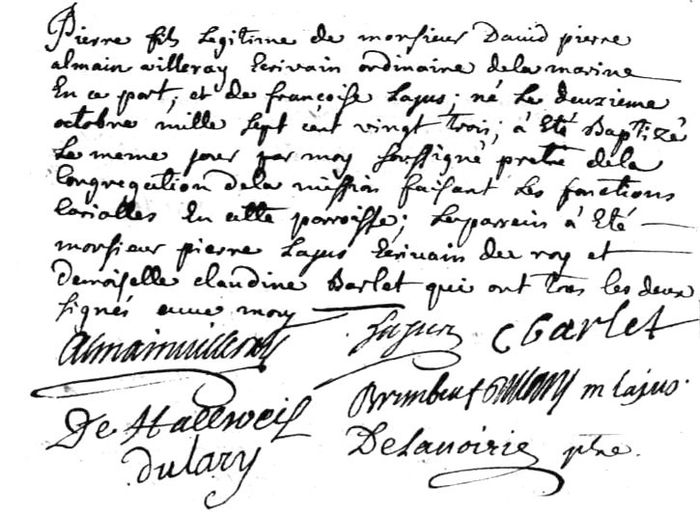 Pierre fils legitime de monsieur David pierre
almain villeray Ecrivain ordinaire dela marine
En ce port; et de françoise Lajus; né Le deuxieme
octobre mille sept cent vingt trois; à Eté Baptizé
Le meme jour par moy soussigné pretre dela
Congregation dela mission faisant Les fonctions
Curialles En cette parroisse; Leparrein à Eté
monsieur pierre Lajus Ecrivain du roy et
Demoiselle claudine Barlet qui ont tous les deux
signés avec moy
Almainvilleray Lajus C Barlet
m Lajus
De Hallweil
Delanoirie ptre.
Dulary